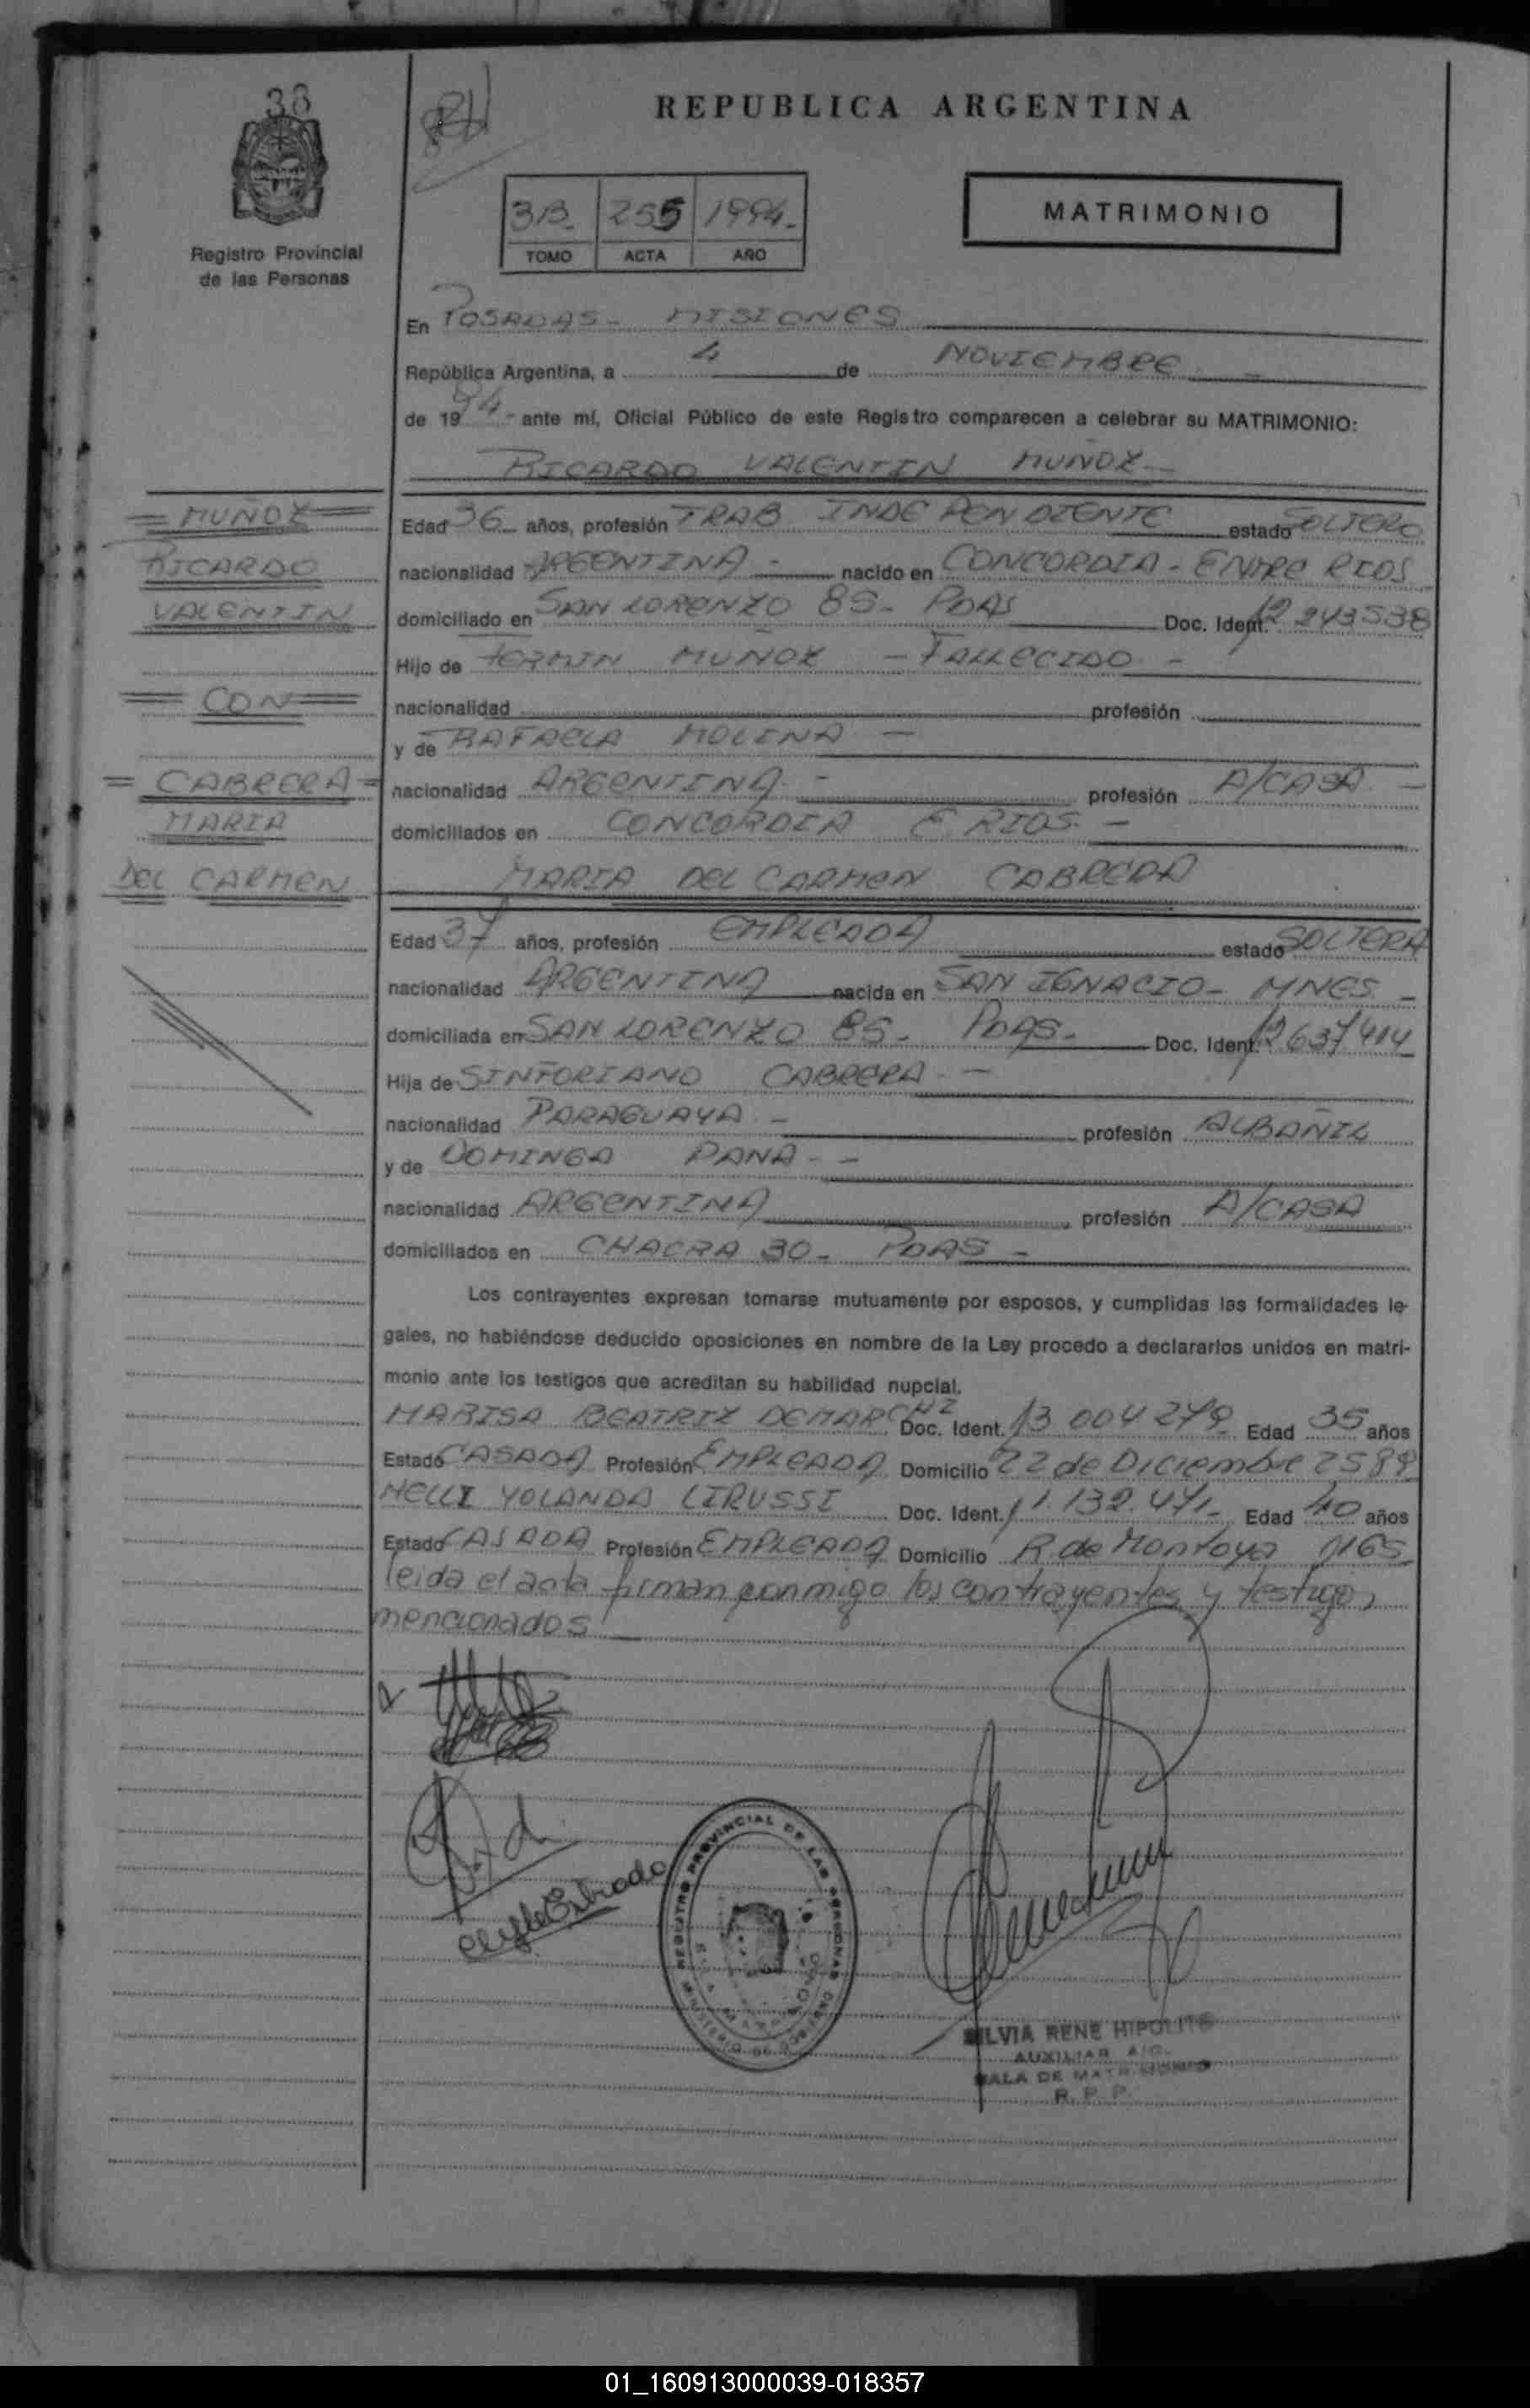 38
REPUBLICA ARGENTINA
Registro Provincial
de las Personas
3B. 255 1994.-
TOMO ACTA AÑO
MATRIMONIO
En POSADAS - MISIONES
República Argentina, a 4 de NOVIEMBRE
de 1994- ante mí, Oficial Público de este Registro comparecen a celebrar su MATRIMONIO:
RICARDO VALENTIN MUÑOZ-
= MUÑOZ =
RICARDO
VALENTIN
= CON =
= CABRERA =
MARIA
DEL CARMEN
Edad 36 años, profesión TRAB INDEPENDIENTE estado SOLTERO
nacionalidad ARGENTINA - nacido en CONCORDIA - ENTRE RIOS
domiciliado en SAN LORENZO 85- PDAS Doc. Ident. 12 243538
Hijo de FERMIN MUÑOZ - FALLECIDO -
nacionalidad profesión
y de RAFAELA MOLINA -
nacionalidad ARGENTINA - profesión A/CASA -
domiciliados en CONCORDIA E. RIOS -
MARIA DEL CARMEN CABRERA
Edad 37 años, profesión EMPLEADA estado SOLTERA
nacionalidad ARGENTINA nacida en SAN IGNACIO - MNES -
domiciliada en SAN LORENZO 85- PDAS- Doc. Ident. 12637414
Hija de SINFORIANO CABRERA -
nacionalidad PARAGUAYA - profesión ALBAÑIL
y de DOMINGA PANA - -
nacionalidad ARGENTINA profesión A/CASA
domiciliados en CHACRA 30- PDAS -
Los contrayentes expresan tomarse mutuamente por esposos, y cumplidas las formalidades le-
gales, no habiéndose deducido oposiciones en nombre de la Ley procedo a declararlos unidos en matri-
monio ante los testigos que acreditan su habilidad nupcial.
MARISA BEATRIZ DEMARCHI Doc. Ident. 13 004 279 Edad 35 años
Estado CASADA Profesión EMPLEADA Domicilio 22 de Diciembre 2589
NELLI YOLANDA LIRUSSI Doc. Ident. 11.132.471- Edad 40 años
Estado CASADA Profesión EMPLEADA Domicilio R. de Montoya 1165
leida el acta firman conmigo los contrayentes y testigos
mencionados
REGISTRO PROVINCIAL DE LAS PERSONAS
SILVIA RENE HIPOLITO
AUXILIAR A/C.
SALA DE MATRIMONIO
R. P. P.
01_160913000039-018357